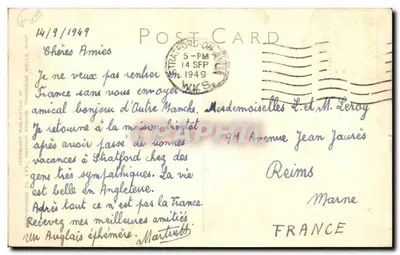 14/9/1949
POST CARD
STRATFORD-ON-AVON
5-PM
14 SEP
1949
Chères Amies
Je ne veux pas rentrer en
France sans vous envoyer
amical bonjour d'Outre Manche,
Je retourne à la maison bientôt
après avoir passé de bonnes
vacances à Stratford chez des
gens très sympathiques. La vie
est belle en Angleterre.
Après tout ce n'est pas la France.
Recevez mes meilleures amitiés
Un Anglais éphémère.
Mesdemoiselles L. et M. Leroy
Avenue Jean Jaurès
Reims
Marne
FRANCE